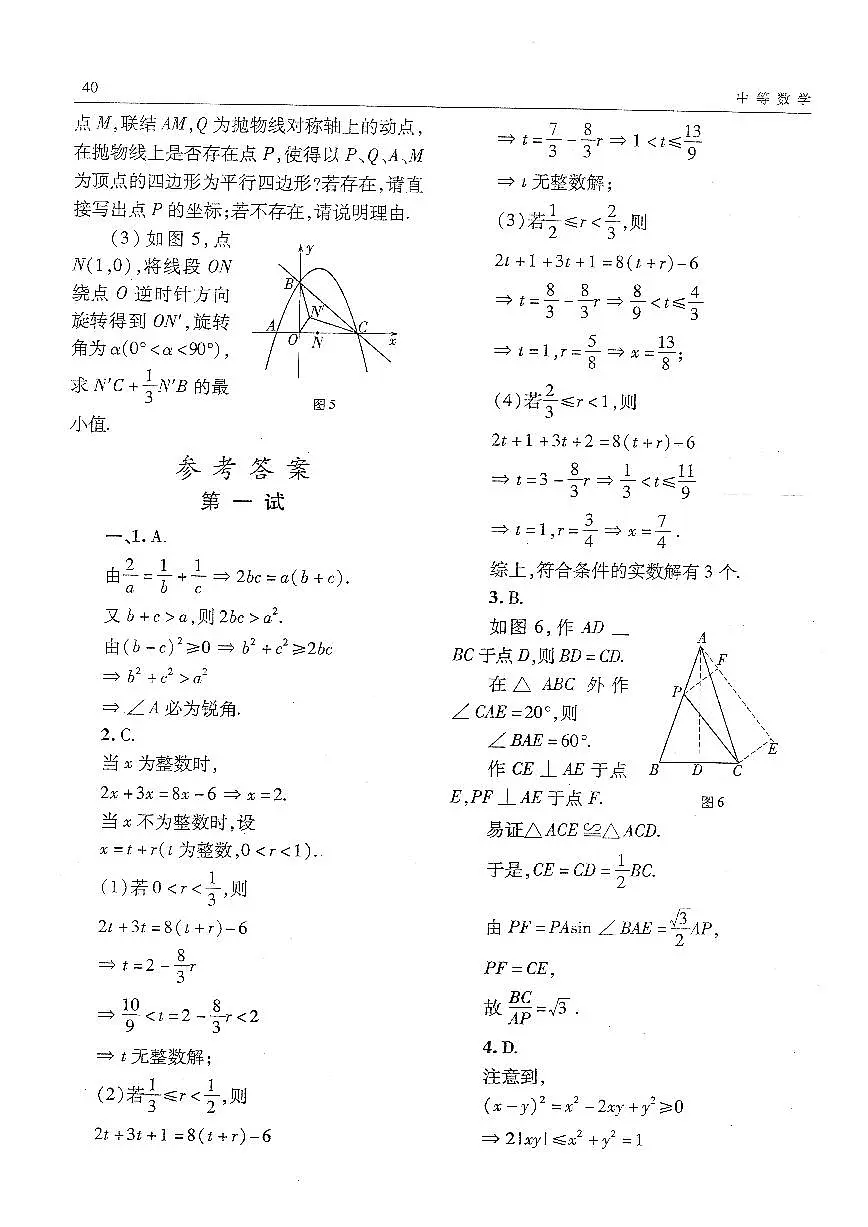 40
中等数学
点 M,联结 AM,Q 为抛物线对称轴上的动点,
在抛物线上是否存在点 P,使得以 P、Q、A、M
为顶点的四边形为平行四边形?若存在,请直
接写出点 P 的坐标;若不存在,请说明理由.
(3) 如图 5,点
N(1,0),将线段 ON
绕点 O 逆时针方向
旋转得到 ON′,旋转
角为 α(0°<α<90°),
求 N′C + 1/3 N′B 的最
小值.
y
B
N′
A
O
N
C
x
图 5
参考答案
第一试
一、1. A.
由 2/a = 1/b + 1/c ⇒ 2bc = a(b + c).
又 b + c > a,则 2bc > a².
由 (b - c)² ≥ 0 ⇒ b² + c² ≥ 2bc
⇒ b² + c² > a²
⇒ ∠A 必为锐角.
2. C.
当 x 为整数时,
2x + 3x = 8x - 6 ⇒ x = 2.
当 x 不为整数时,设
x = t + r(t 为整数,0 < r < 1).
(1) 若 0 < r < 1/3,则
2t + 3t = 8(t + r) - 6
⇒ t = 2 - 8/3 r
⇒ 10/9 < t = 2 - 8/3 r < 2
⇒ t 无整数解;
(2) 若 1/3 ≤ r < 1/2,则
2t + 3t + 1 = 8(t + r) - 6
⇒ t = 7/3 - 8/3 r ⇒ 1 < t ≤ 13/9
⇒ t 无整数解;
(3) 若 1/2 ≤ r < 2/3,则
2t + 1 + 3t + 1 = 8(t + r) - 6
⇒ t = 8/3 - 8/3 r ⇒ 8/9 < t ≤ 4/3
⇒ t = 1, r = 5/8 ⇒ x = 13/8;
(4) 若 2/3 ≤ r < 1,则
2t + 1 + 3t + 2 = 8(t + r) - 6
⇒ t = 3 - 8/3 r ⇒ 1/3 < t ≤ 11/9
⇒ t = 1, r = 3/4 ⇒ x = 7/4.
综上,符合条件的实数解有 3 个.
3. B.
如图 6,作 AD
BC 于点 D,则 BD = CD.
在 △ABC 外作
∠CAE = 20°,则
∠BAE = 60°.
作 CE ⊥ AE 于点
E,PF ⊥ AE 于点 F.
A
F
P
E
B
D
C
图 6
易证 △ACE ≌ △ACD.
于是,CE = CD = 1/2 BC.
由 PF = PAsin ∠BAE = √3/2 AP,
PF = CE,
故 BC/AP = √3.
4. D.
注意到,
(x - y)² = x² - 2xy + y² ≥ 0
⇒ 2|xy| ≤ x² + y² = 1